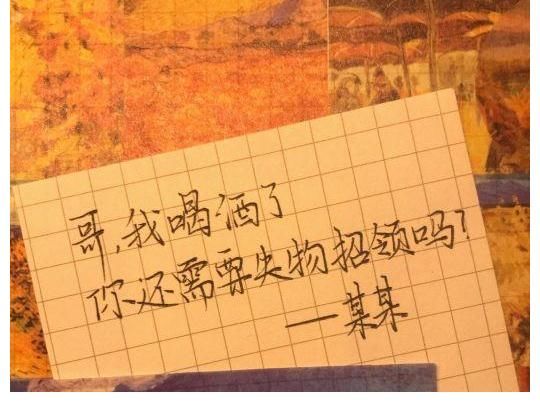 哥,我喝酒了
你还需要失物招领吗?
—某某